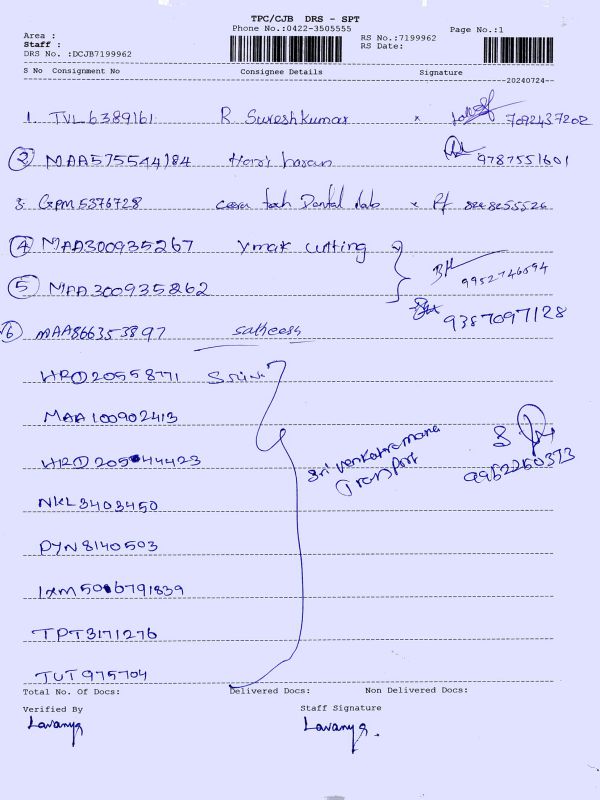 TPC/CJB DRS - SPT
Phone No.:0422-3505555
Page No.:1
Area :
RS No.:7199962
Staff :
RS Date:
DRS No. :DCJB7199962
S No Consignment No Consignee Details Signature
20240724
1. TVL6389161 R Sureshkumar x 7092437202
2 MAA575544184 Hari haran 9787551601
3. GPM5376728 Dental lab x
4 MAA300935267 Ymak cutting
5 MAA300935262 9952746594
9387097128
6 MAA866353897 satheesh
HRO20558771
MAA100902413
HRO205044423 Sri Venkatramana
Transport 9952260373
NKL3403450
PYN8140503
IXM506791839
TPT3171276
TUT975704
Total No. Of Docs: Delivered Docs: Non Delivered Docs:
Verified By Staff Signature
Lavanya Lavanya